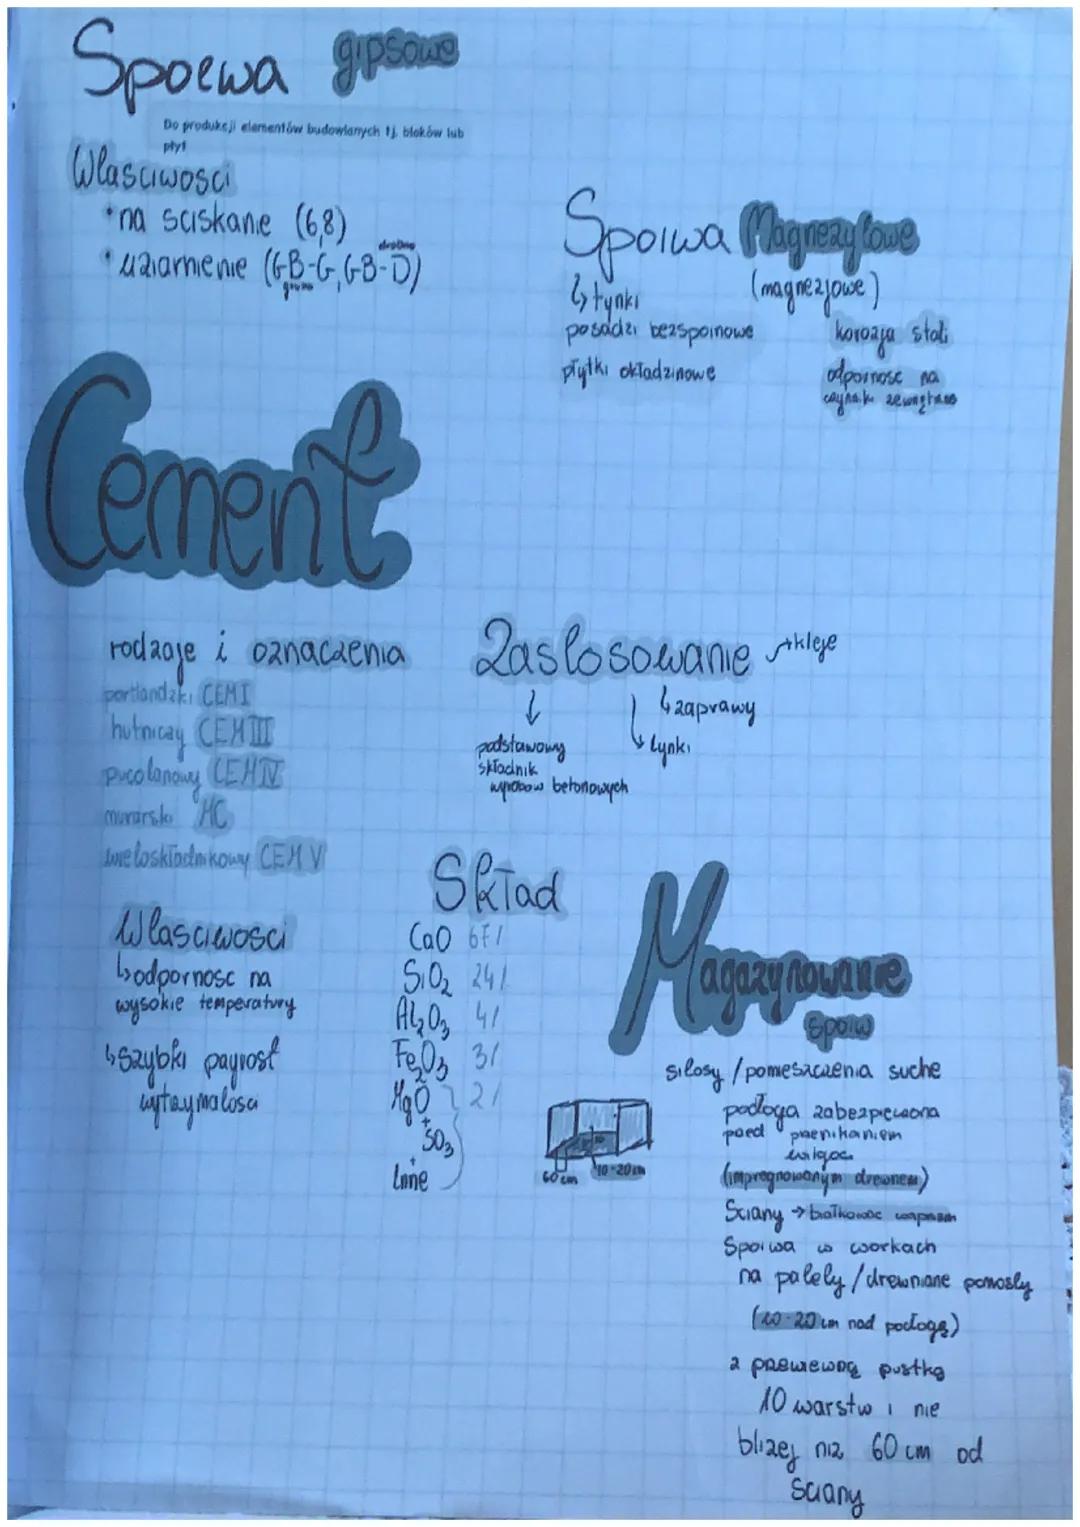 Spoiwa gipsowe
Do produkcji elementów budowlanych tj. bloków lub
płyt
Wlasciwosci
• na sciskanie (6,8)
drobno
• uziarnienie (GB-G, GB-D)
grubo
Spoiwa Magnezytowe
(magnezjowe)
↳ tynki
posadzi bezspoinowe
płytki okładzinowe
korozja stali
odpornosc na
czynniki zewnętrzne
Cement
rodzaje i oznaczenia
portlandzki CEM I
hutniczy CEM III
pucolanowy CEM IV
murarski MC
wieloskładnikowy CEM V
Zastosowanie → kleje
↳ zaprawy
↳ tynki
podstawowy
składnik
wyrobow betonowych
Wlasciwosci
↳ odpornosc na
wysokie temperatury
↳ szybki payrost
wytrzymalosci
Skład
CaO 67%
SiO₂ 24%
Al₂O₃ 4%
Fe₂O₃ 3%
MgO } 2%
+
SO₃
+
Inne
Magazynowanie
spoiw
silosy / pomieszczenia suche
60 cm
10-20cm
podłoga zabezpieczona
przed przenikaniem
wilgoci
(impregnowanym drewnem)
Sciany → białkowac wapnem
Spoiwa w workach
na palety / drewniane pomosty
(10-20 cm nad podłogą)
z powietrzną pustką
10 warstw i nie
blizej niz 60 cm od
sciany